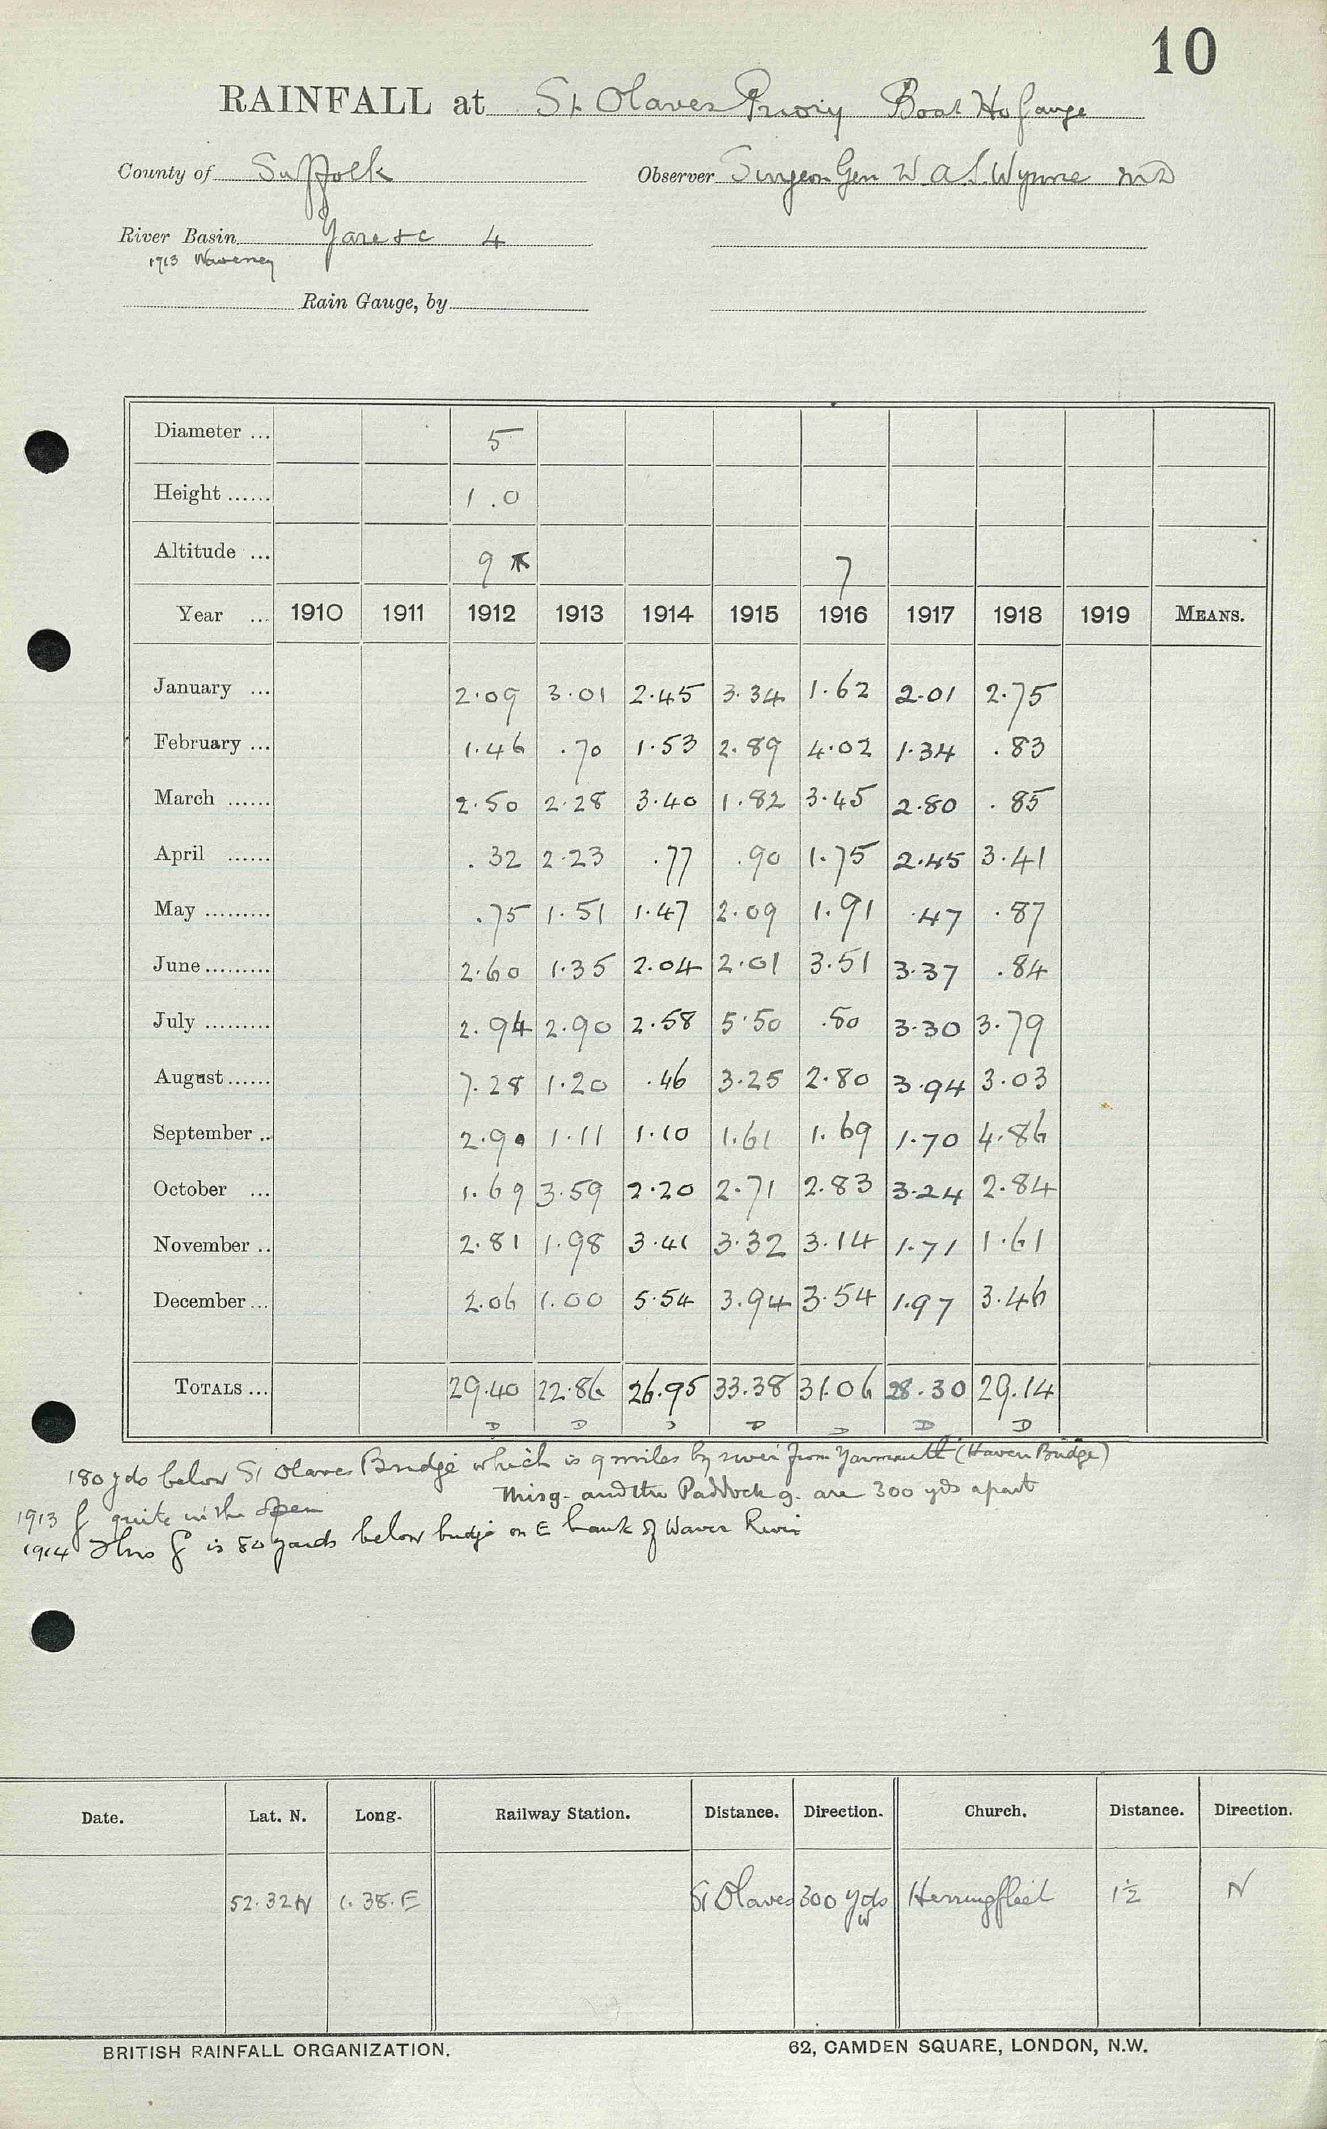 10
RAINFALL at St Olaves Priory Boat Ho Gauge
County of Suffolk Observer Surgeon Gen W. A. S. Wynne MD
River Basin Yare &c 4
1913 Waveney
Rain Gauge, by
Diameter ... 5
Height ...... 1.0
Altitude ... 9 * 7
Year ... 1910 1911 1912 1913 1914 1915 1916 1917 1918 1919 MEANS.
January ... 2.09 3.01 2.45 3.34 1.62 2.01 2.75
February ... 1.46 .70 1.53 2.89 4.02 1.34 .83
March ...... 2.50 2.28 3.40 1.82 3.45 2.80 .85
April ...... .32 2.23 .77 .90 1.75 2.45 3.41
May ......... .75 1.51 1.47 2.09 1.91 .47 .87
June ......... 2.60 1.35 2.04 2.01 3.51 3.37 .84
July ......... 2.94 2.90 2.58 5.50 .80 3.30 3.79
August ...... 7.28 1.20 .46 3.25 2.80 3.94 3.03
September .. 2.90 1.11 1.10 1.61 1.69 1.70 4.86
October ... 1.69 3.59 2.20 2.71 2.83 3.24 2.84
November .. 2.81 1.98 3.41 3.32 3.14 1.71 1.61
December ... 2.06 1.00 5.54 3.94 3.54 1.97 3.46
TOTALS ... 29.40 22.86 26.95 33.38 31.06 28.30 29.14
D D D D D D D
180 yds below St Olaves Bridge which is 9 miles by river from Yarmouth (Haven Bridge)
This g. and the Paddock g. are 300 yds apart
1913 g quite in the open
1914 This g is 80 yards below bridge on E bank of Waver River
Date. Lat. N. Long. Railway Station. Distance. Direction. Church. Distance. Direction.
52.32 N 1.38.E St Olaves 300 yds W Herringfleet 1½ N
BRITISH RAINFALL ORGANIZATION. 62, CAMDEN SQUARE, LONDON, N.W.